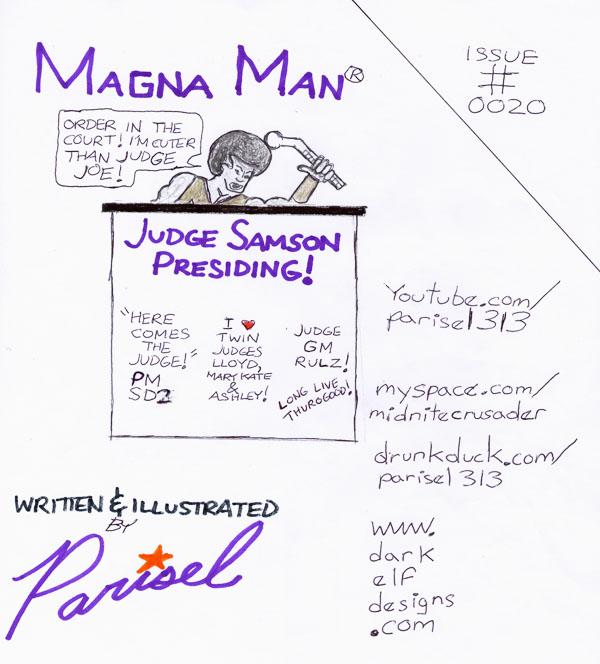 MAGNA MAN®
ISSUE
#
0020
ORDER IN THE
COURT! I'M CUTER
THAN JUDGE
JOE!
JUDGE SAMSON
PRESIDING!
"HERE
COMES
THE
JUDGE!"
PM
SD2
I ♥
TWIN
JUDGES
LLOYD,
MARY KATE
&
ASHLEY!
JUDGE
GM
RULZ!
LONG LIVE
THUROGOOD!
Youtube.com/
parisel1313
myspace.com/
midnitecrusader
drunkduck.com/
parisel1313
www.
dark
elf
designs
.com
WRITTEN & ILLUSTRATED
BY
Parisel